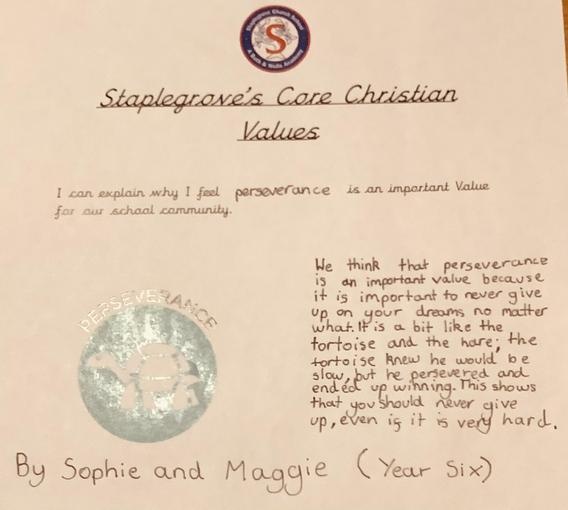 Staplegrove Church School
S
A Bath & Wells Academy
Staplegrove's Core Christian
Values
I can explain why I feel perseverance is an important Value
for our school community.
PERSEVERANCE
We think that perseverance
is an important value because
it is important to never give
up on your dreams no matter
what. It is a bit like the
tortoise and the hare; the
tortoise knew he would be
slow, but he persevered and
ended up winning. This shows
that you should never give
up, even if it is very hard.
By Sophie and Maggie (Year Six)